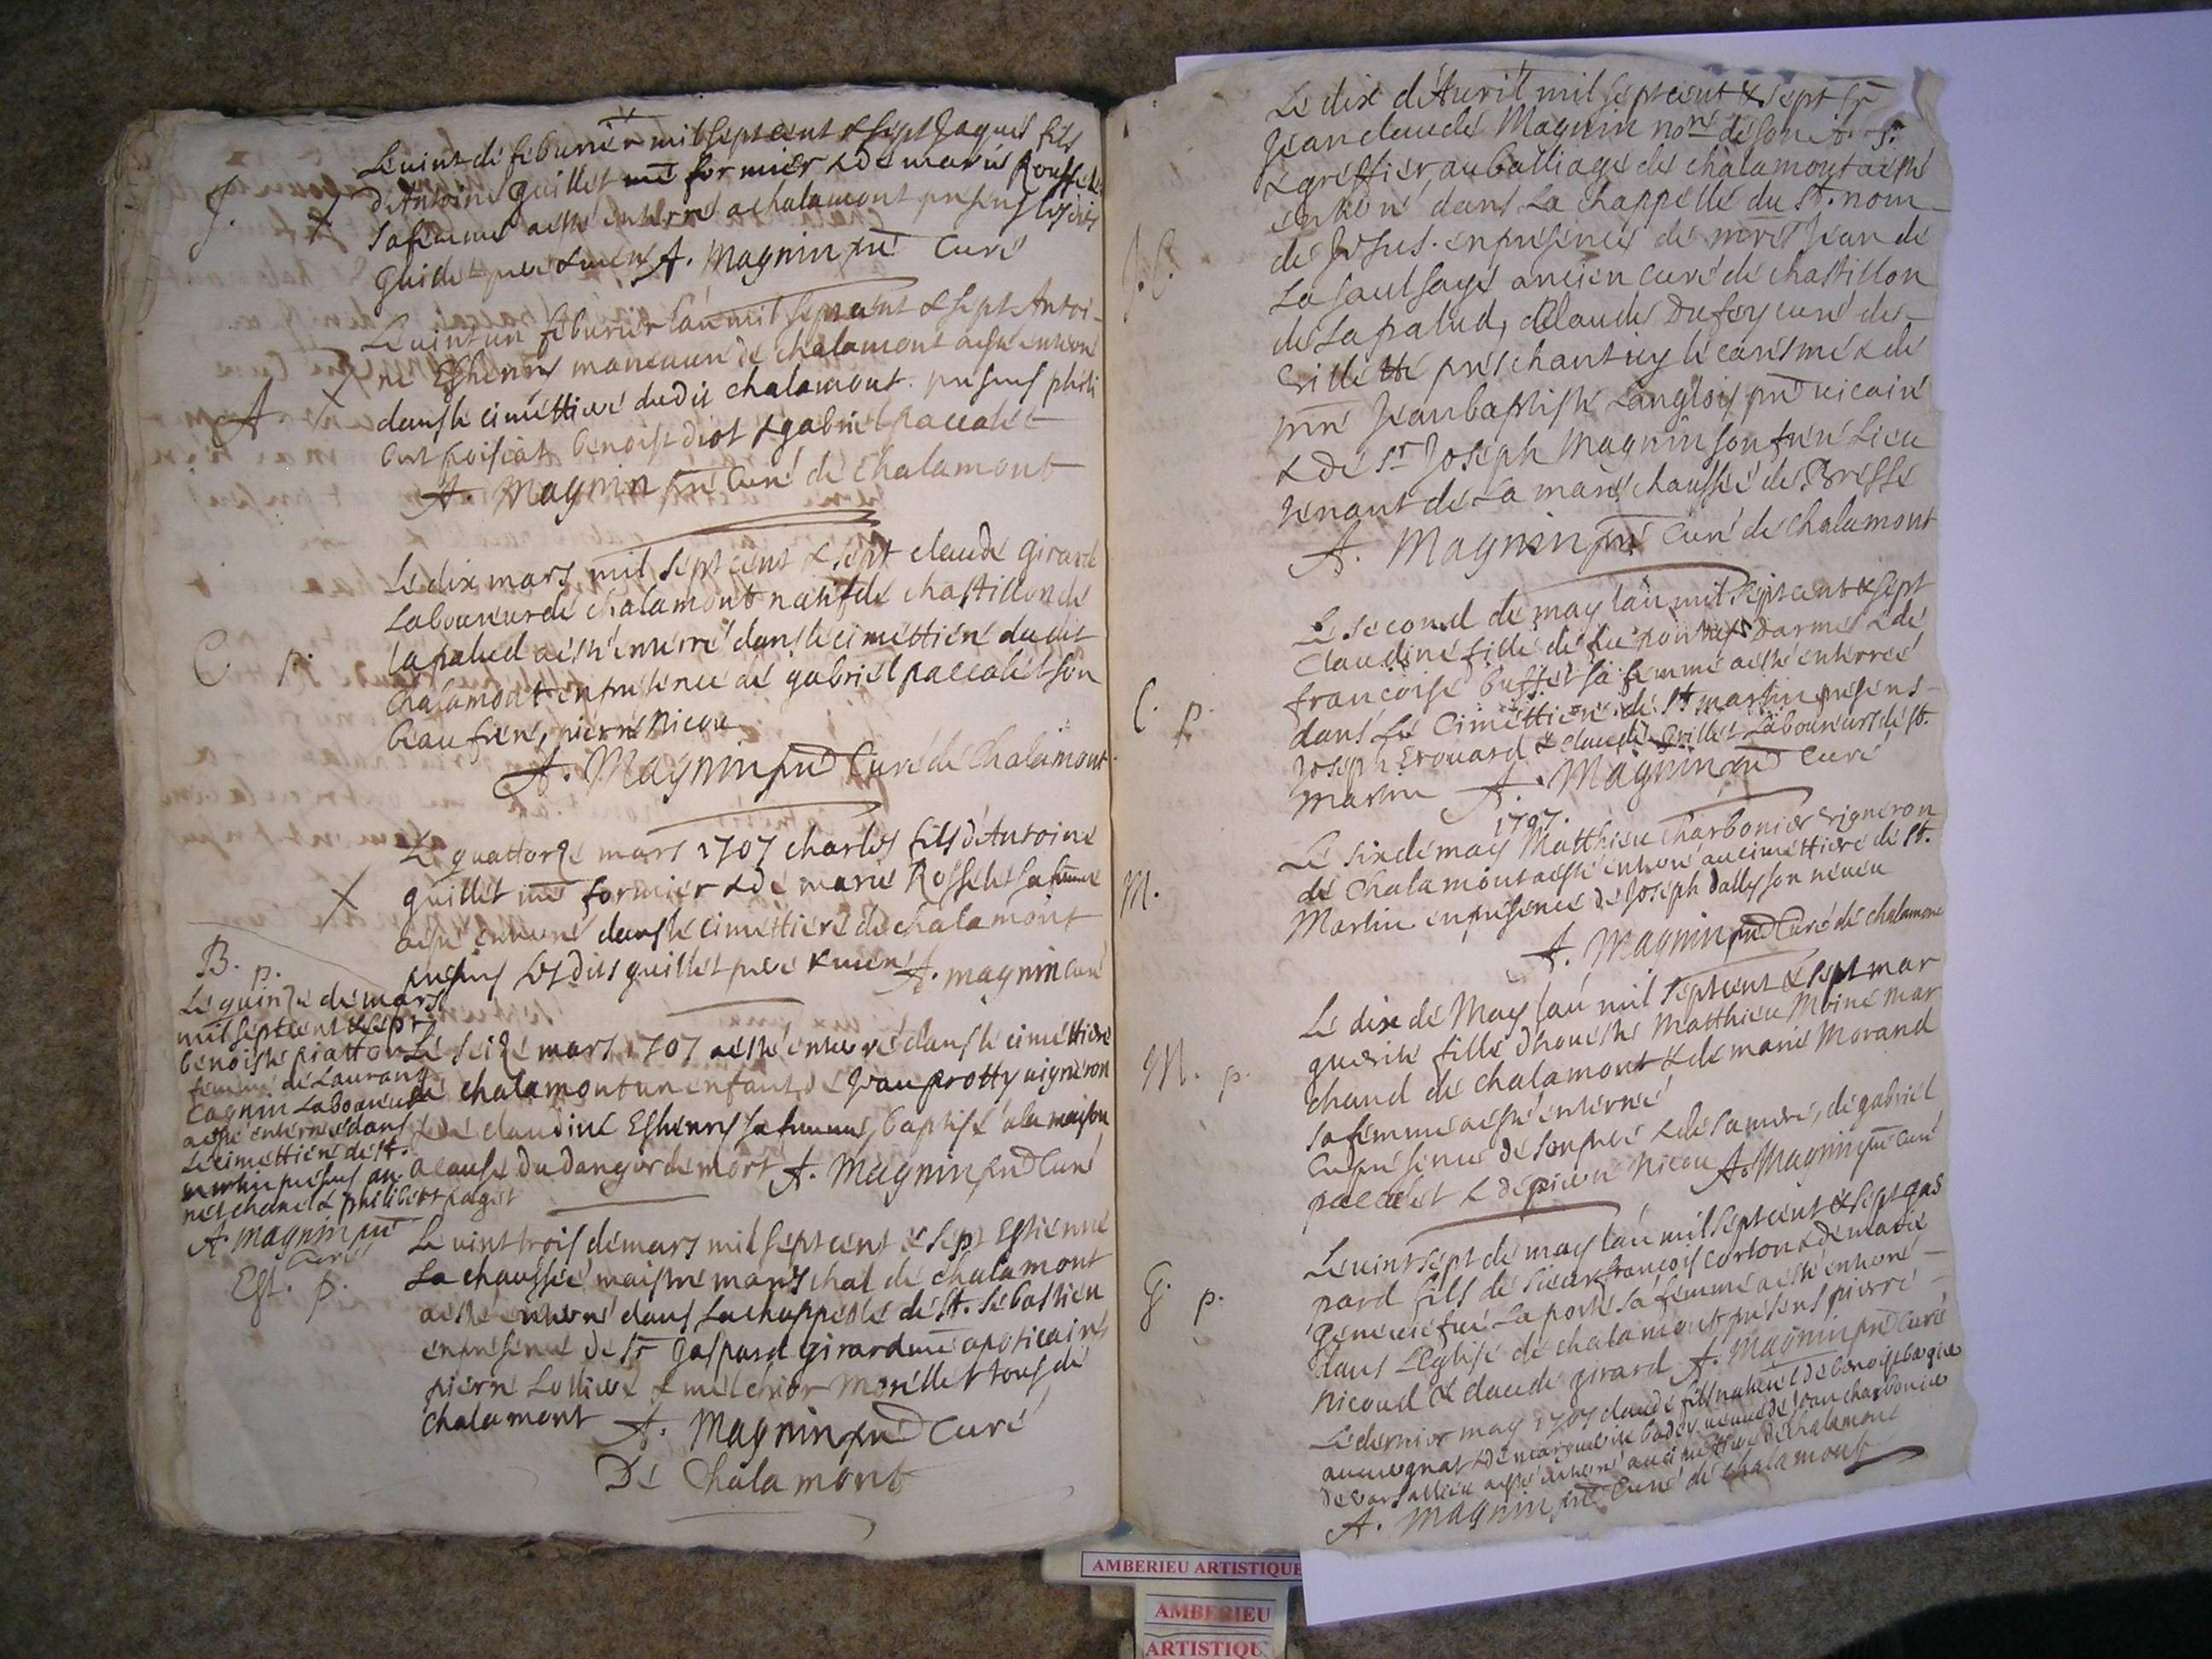 J. X
Le vint de feburier mil sept cent & sept Jaques fils
d'Antoine guillet mê formier & de marie Rousset
sa femme a esté enterré a chalamont presens lesdits
guillet pere & mere A. Magnin prê Curé
A X
Le vint un feburier l'an mil sept cent & sept Antoi-
ne Esthienne manouvrier de chalamont a esté enterré
dans le cimettiere du dit chalamont. presens phili
bert benoist diot & gabriel paccalet
A. Magnin prê Curé de Chalamont
C. p.
Le dix mars mil sept cent & sept claude girard
Laboureur de chalamont natif de chastillon de
la palud a esté enterré dans le cimettiere du dit
chalamont en presence de gabriel paccalet son
beau frere, pierre Nicou
A. Magnin prê Curé de Chalamont
X
Le quattorze mars 1707 charles fils d'Antoine
guillet mê formier & de marie Rosselet sa femme
a esté enterré dans le cimettiere de chalamont
presens les dits guillet pere & mere A. magnin curé
B. p.
Le quinze de mars
mil sept cent & sept
benoiste piatton
femme de Laurans
Cagnin Laboureur
a esté enterrée dans
Le cimettiere de st.
martin presens an
& philibert paget
A. Magnin prê
Curé
Le seize mars 1707 a esté enterré dans le cimettiere
de chalamont un enfant de Jean protty vigneron
& de claudine Esthienne sa femme, baptisé a la maison
a cause du danger de mort A. Magnin prê Curé
Est. p.
Le vint trois de mars mil sept cent & sept Estienne
La chaussée maistre mareschal de chalamont
a esté enterré dans La chappelle de st. sebastien
en presence de sr gaspard girard mê apoticaire
pierre Lolliere & melchior Morellet tous de
chalamont A. Magnin prê Curé
De Chalamont
J. C.
Le dix d'Avril mil sept cent & sept sr
Jean claude Magnin nore de son A. S.
& greffier au balliage de chalamont a esté
enterré dans La chappelle du st. nom
de Jesus. en presence de mre Jean de
La saulsaye ancien curé de chastillon
de La palud, claude Dufey curé de
Crillette preschant icy le caresme & de
mre Jean baptiste Langlois prê vicaire
& de sr Joseph Magnin son frere Lieu
tenant de La mareschaussée de Bresse
A. Magnin prê Curé de Chalamont
C. p.
Le second de may l'an mil sept cent & sept
Claudine fille de feu Darmes & de
francoise buffet sa femme a esté enterrée
dans Le Cimettiere de st martin presens
Joseph Erouard & claude grillet Laboureurs de st.
Martin A. Magnin prê Curé
1707.
M.
Le six de may Matthieu Charbonier vigneron
de Chalamont a esté enterré au cimettiere de st.
Martin en presence de Joseph dally son neveu
A. Magnin prê Curé de chalamont
M. p.
Le dix de May l'an mil sept cent & sept mar
guerite fille d'honeste Matthieu Moine mar
chand de chalamont & de marie Morand
sa femme a esté enterrée
en presence de son pere & de sa mere, de gabriel
paccalet & de pierre Nicou A. Magnin prê Curé
G. p.
Le vint sept de may l'an mil sept cent & sept gas
pard fils de sieur francois Corton & de marie
geneviefve Laporte sa femme a esté enterré
dans L'eglise de chalamont presens pierre
Nicoud & claude girard A. Magnin prê Curé
Le dernier may 1707 claude fils naturel de benoist
auvergnat & de marguerite badey veuve de Jean charbonier
de a esté enterré au cimettiere de Chalamont
A. Magnin prê Curé de chalamont
AMBERIEU ARTISTIQUE
AMBERIEU
ARTISTIQU